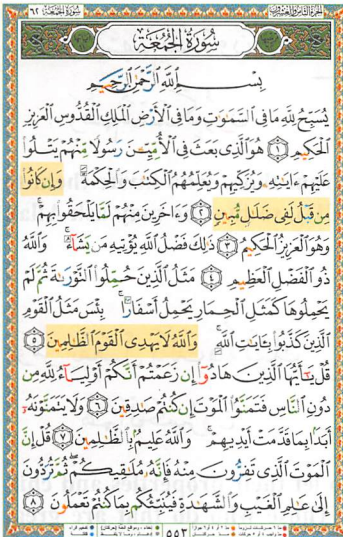 سُورَةُ الجُمُعَةِ ٦٢
سُورَةُ الجُمُعَةِ
بِسْمِ اللَّهِ الرَّحْمَٰنِ الرَّحِيمِ
يُسَبِّحُ لِلَّهِ مَا فِي السَّمَٰوَٰتِ وَمَا فِي الْأَرْضِ الْمَلِكِ الْقُدُّوسِ الْعَزِيزِ
الْحَكِيمِ ۝١ هُوَ الَّذِي بَعَثَ فِي الْأُمِّيِّـۧنَ رَسُولًا مِّنْهُمْ يَتْلُوا۟
عَلَيْهِمْ ءَايَٰتِهِۦ وَيُزَكِّيهِمْ وَيُعَلِّمُهُمُ الْكِتَٰبَ وَالْحِكْمَةَ وَإِن كَانُوا۟
مِن قَبْلُ لَفِي ضَلَٰلٍ مُّبِينٍ ۝٢ وَءَاخَرِينَ مِنْهُمْ لَمَّا يَلْحَقُوا۟ بِهِمْ ۚ
وَهُوَ الْعَزِيزُ الْحَكِيمُ ۝٣ ذَٰلِكَ فَضْلُ اللَّهِ يُؤْتِيهِ مَن يَشَآءُ ۚ وَاللَّهُ
ذُو الْفَضْلِ الْعَظِيمِ ۝٤ مَثَلُ الَّذِينَ حُمِّلُوا۟ التَّوْرَىٰةَ ثُمَّ لَمْ
يَحْمِلُوهَا كَمَثَلِ الْحِمَارِ يَحْمِلُ أَسْفَارًۢا ۚ بِئْسَ مَثَلُ الْقَوْمِ
الَّذِينَ كَذَّبُوا۟ بِـَٔايَٰتِ اللَّهِ ۚ وَاللَّهُ لَا يَهْدِي الْقَوْمَ الظَّٰلِمِينَ ۝٥
قُلْ يَٰٓأَيُّهَا الَّذِينَ هَادُوٓا۟ إِن زَعَمْتُمْ أَنَّكُمْ أَوْلِيَآءُ لِلَّهِ مِن
دُونِ النَّاسِ فَتَمَنَّوُا۟ الْمَوْتَ إِن كُنتُمْ صَٰدِقِينَ ۝٦ وَلَا يَتَمَنَّوْنَهُۥٓ
أَبَدًۢا بِمَا قَدَّمَتْ أَيْدِيهِمْ ۚ وَاللَّهُ عَلِيمٌۢ بِالظَّٰلِمِينَ ۝٧ قُلْ إِنَّ
الْمَوْتَ الَّذِي تَفِرُّونَ مِنْهُ فَإِنَّهُۥ مُلَٰقِيكُمْ ۖ ثُمَّ تُرَدُّونَ
إِلَىٰ عَٰلِمِ الْغَيْبِ وَالشَّهَٰدَةِ فَيُنَبِّئُكُم بِمَا كُنتُمْ تَعْمَلُونَ ۝٨
٥٥٣